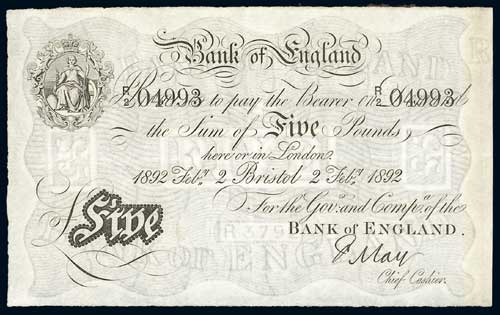 Bank of England
R/2 04993 to pay the Bearer on R/2 04993
the Sum of Five Pounds
here or in London.
1892 Febry. 2 Bristol 2 Febry. 1892
For the Govr. and Compa. of the
BANK OF ENGLAND.
Five
F May
Chief Cashier.
R 379